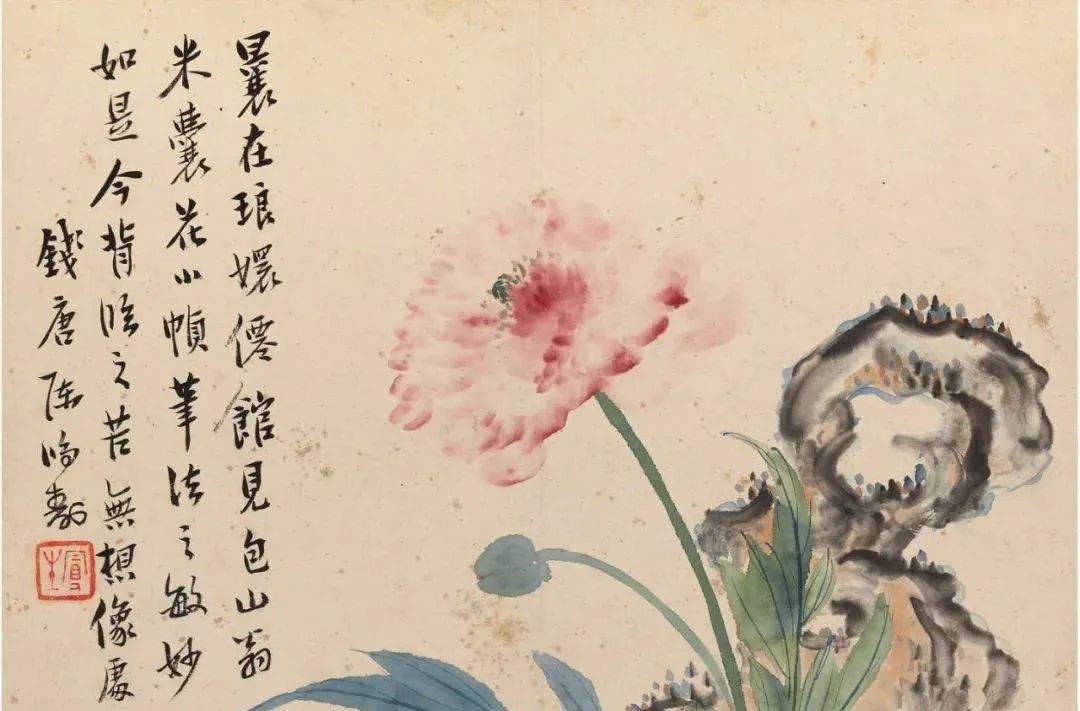 曩在琅嬛僊館見包山翁
米囊花小幀筆法之敏妙
如是今背臨之苦無想像處
錢唐陳鴻壽
曼生